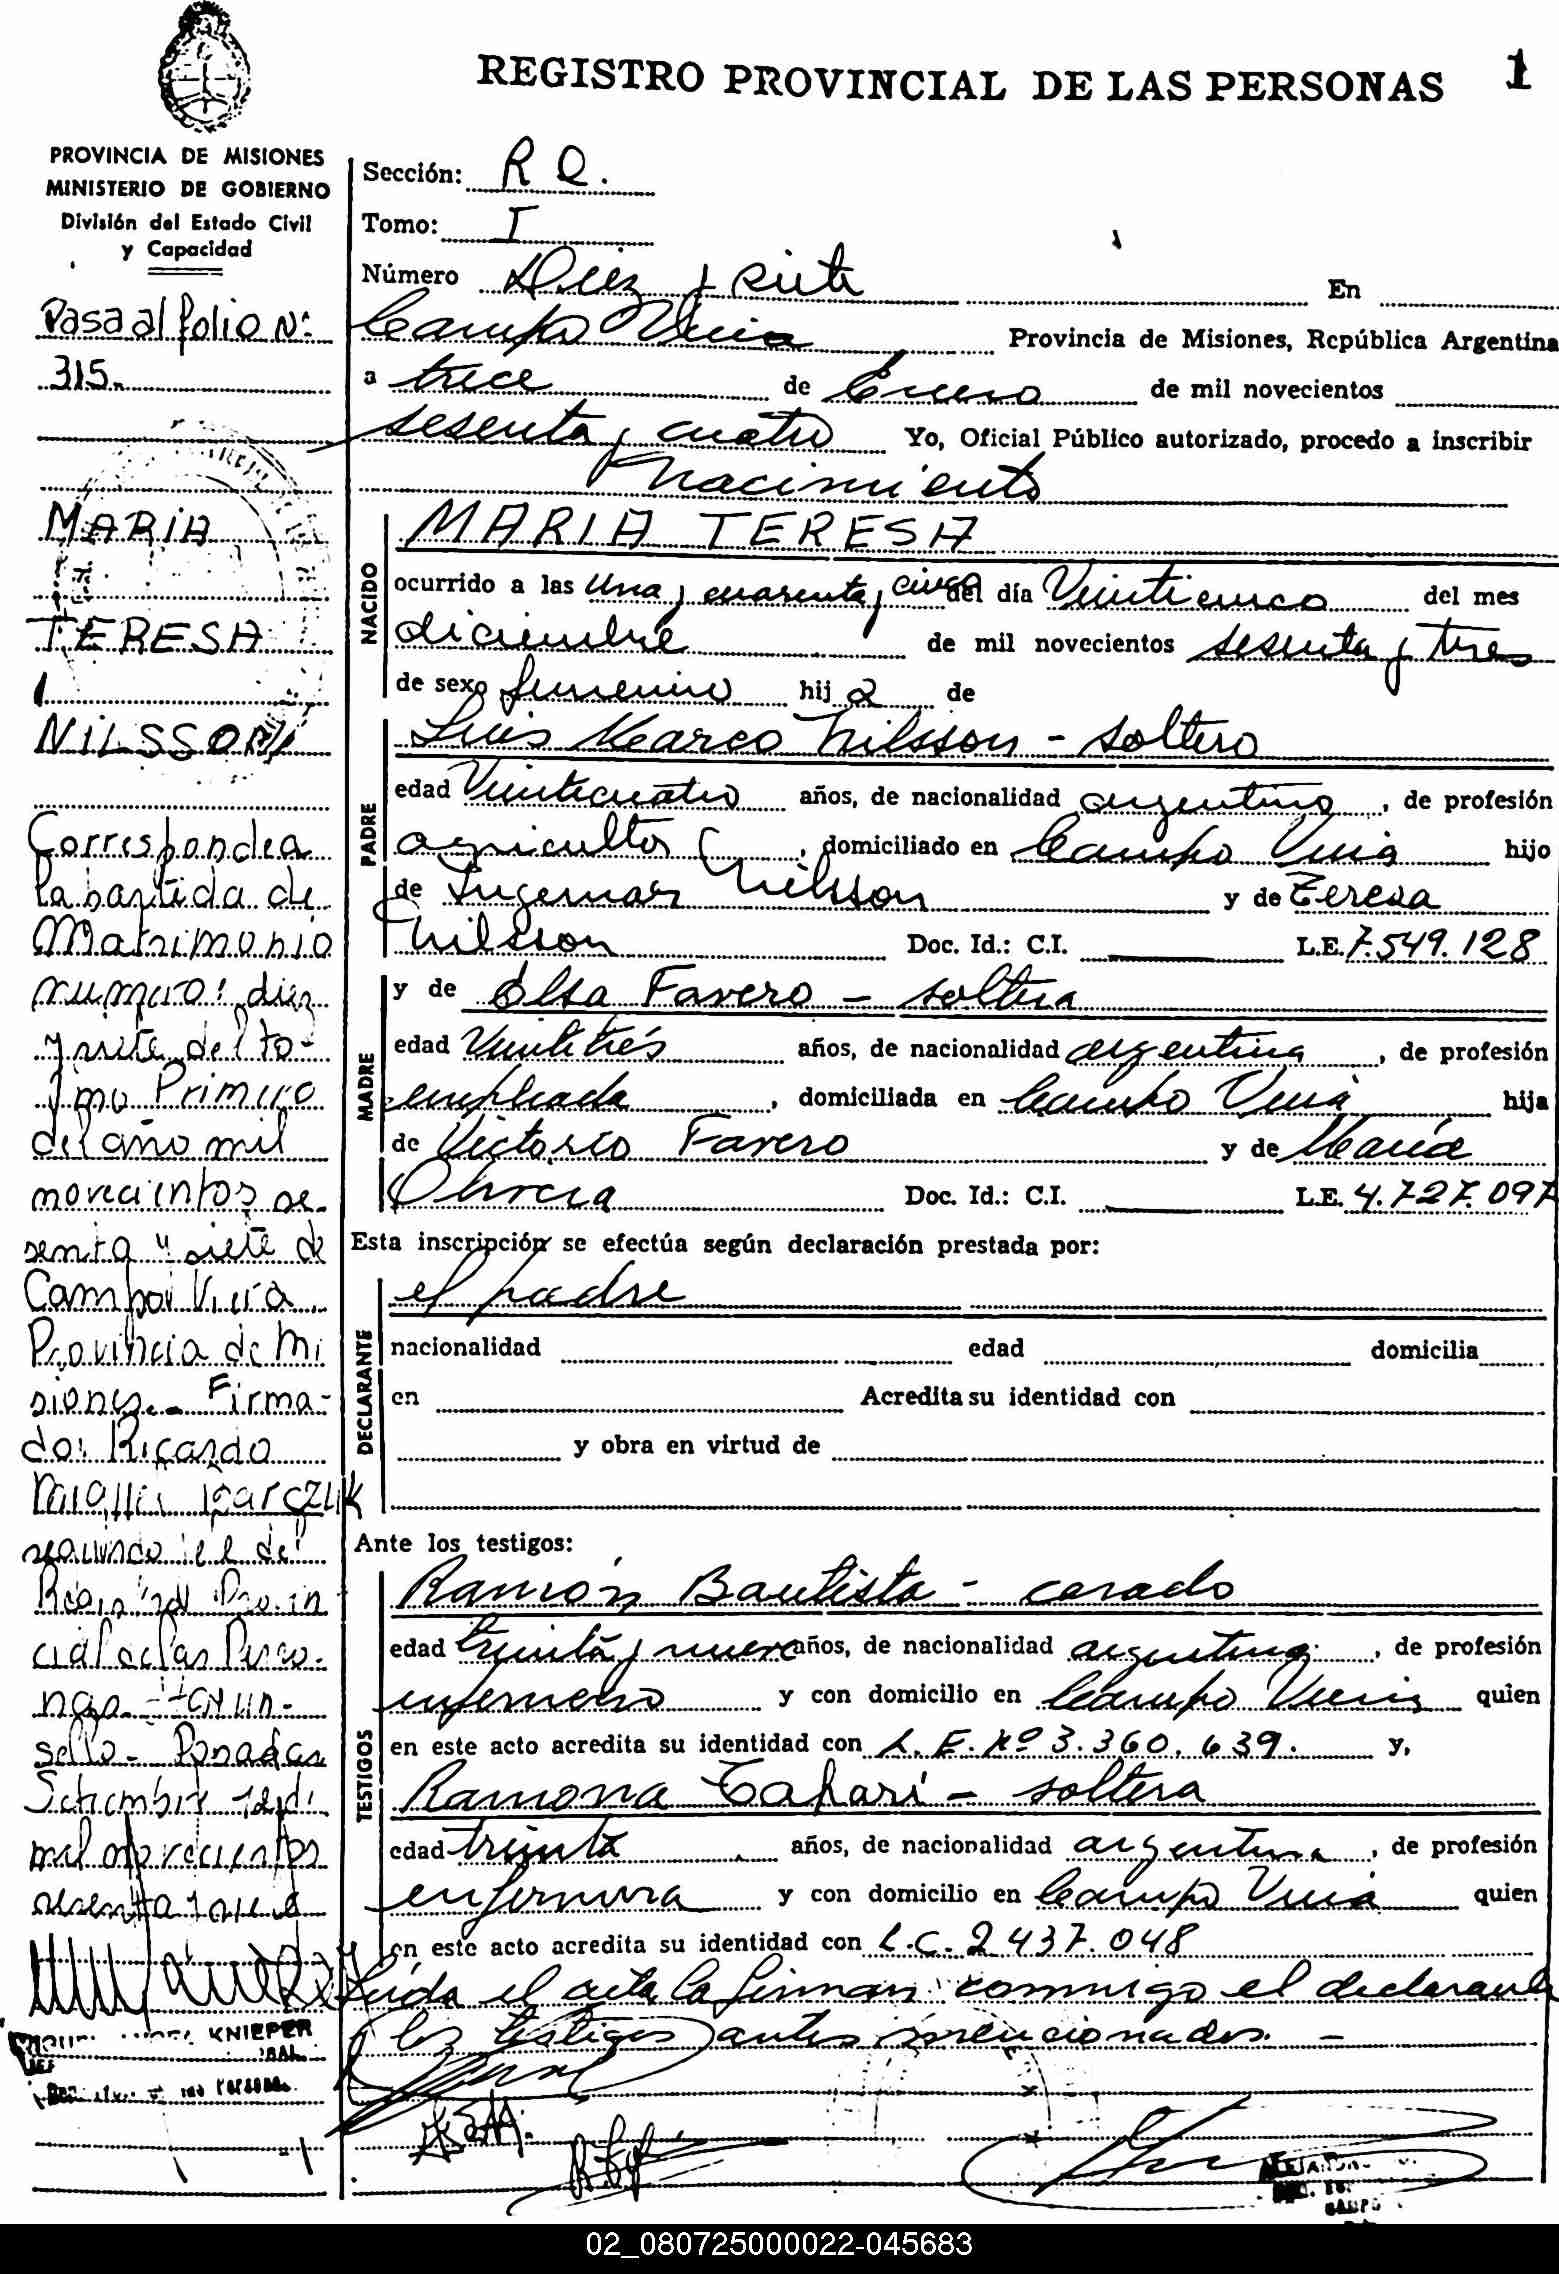 REGISTRO PROVINCIAL DE LAS PERSONAS 1
PROVINCIA DE MISIONES
MINISTERIO DE GOBIERNO
División del Estado Civil
y Capacidad
Pasa al folio Nº
315.
MARIA
TERESA
NILSSON
Corresponde a
la partida de
Matrimonio
numero: diez
y siete del to-
mo Primero
del año mil
novecientos se-
senta y siete de
Campo Viera
Provincia de Mi
siones.- Firma-
do: Ricardo
segundo
cial de las Perso-
nas
sello- Posadas
Setiembre 12 de
mil novecientos
sesenta y siete
KNIEPER
Sección: R Q.
Tomo: I
Número Diez y siete En
Campo Viera Provincia de Misiones, República Argentina
a trece de Enero de mil novecientos
sesenta y cuatro Yo, Oficial Público autorizado, procedo a inscribir
nacimiento
NACIDO
MARIA TERESA
ocurrido a las una y cuarenta y cinco del día Veinticinco del mes
diciembre de mil novecientos sesenta y tres
de sexo femenino hija de
PADRE
Luis Marco Nilsson - soltero
edad Veinticuatro años, de nacionalidad argentino, de profesión
agricultor, domiciliado en Campo Viera hijo
de Ingemar Nilsson y de Teresa
Nilsson Doc. Id.: C.I. L.E. 7.549.128
MADRE
y de Elsa Favero - soltera
edad Veintitrés años, de nacionalidad argentina, de profesión
empleada, domiciliada en Campo Viera hija
de Victorio Favero y de María
Doc. Id.: C.I. L.E. 4.727.097
Esta inscripción se efectúa según declaración prestada por:
DECLARANTE
el padre
nacionalidad edad domicilia
en Acredita su identidad con
y obra en virtud de
Ante los testigos:
TESTIGOS
Ramón Bautista - casado
edad treinta y nueve años, de nacionalidad argentina, de profesión
enfermero y con domicilio en Campo Viera quien
en este acto acredita su identidad con L.E. Nº 3.360.639. y,
Ramona - soltera
edad treinta años, de nacionalidad argentina, de profesión
enfermera y con domicilio en Campo Viera quien
en este acto acredita su identidad con L.C. 2 437.048
Leída el acta la firman conmigo el declarante
y los testigos antes mencionados. -
02_080725000022-045683